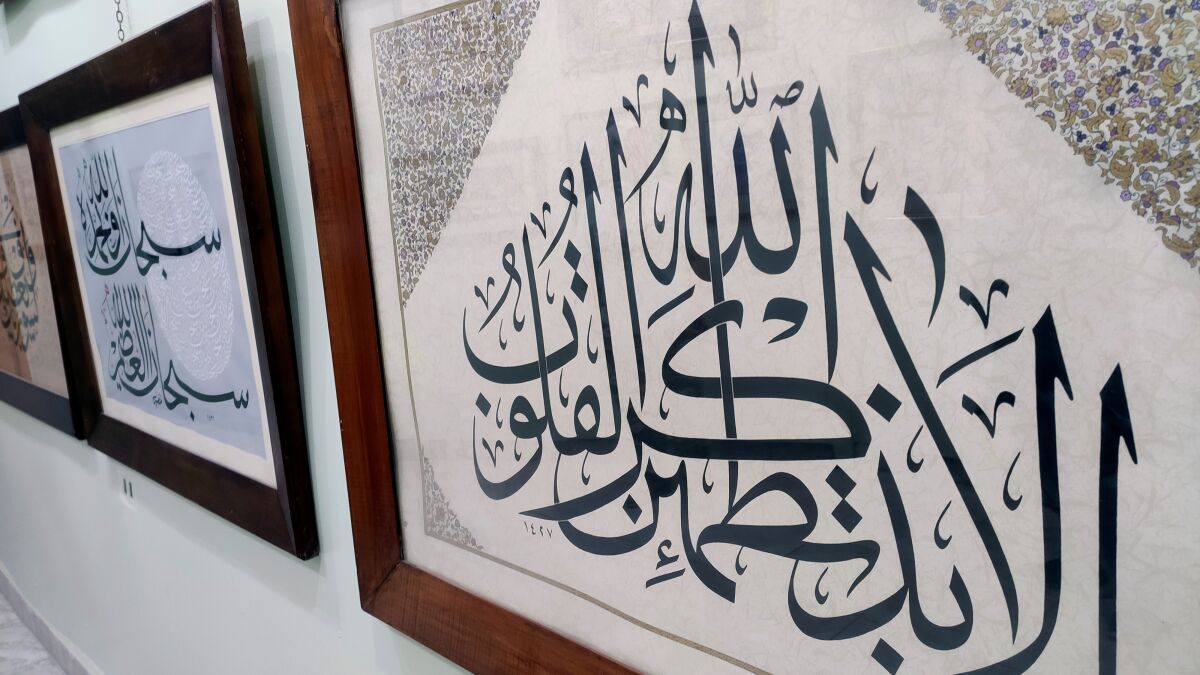 ألا بذكر الله تطمئن القلوب
١٤٢٧
سبحان الله وبحمده
سبحان الله العظيم